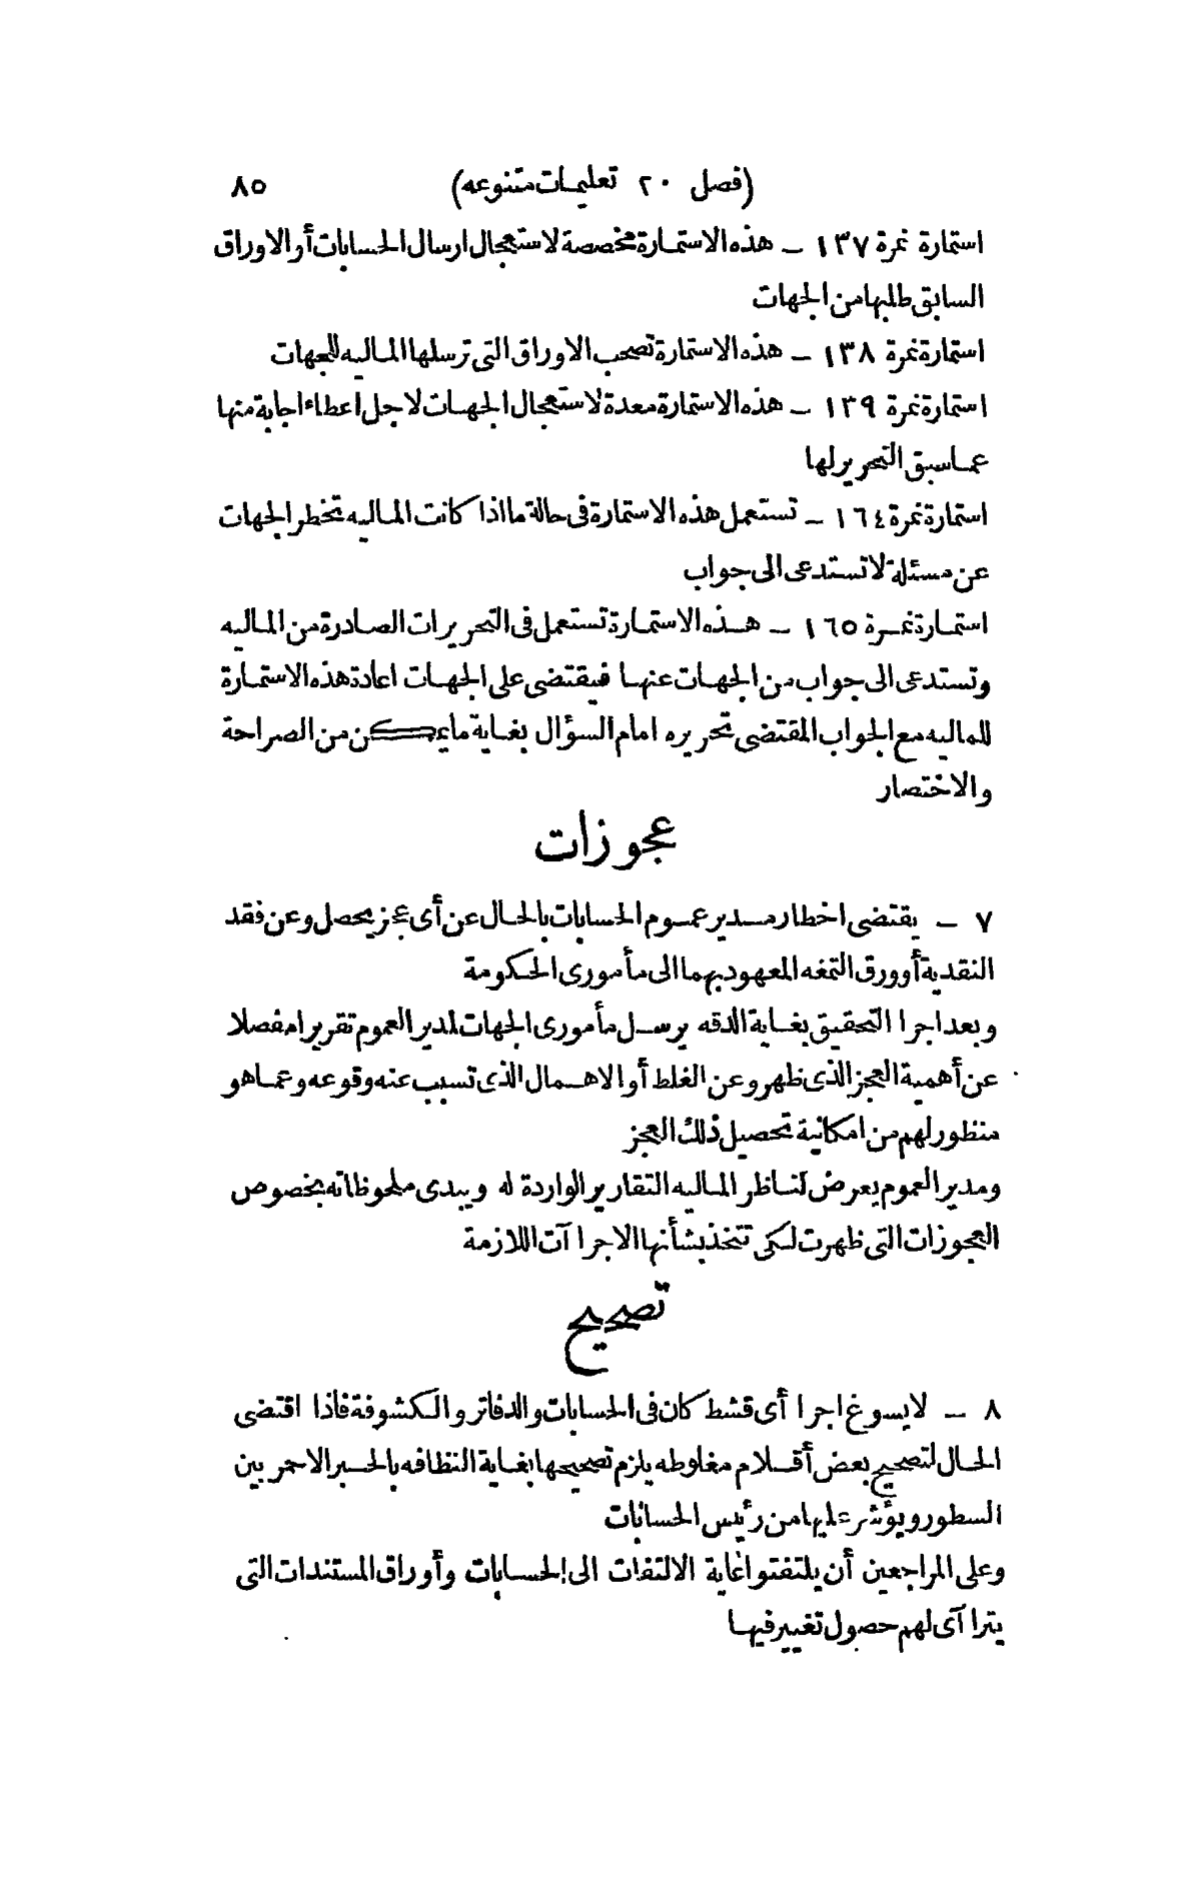 (فصل ٢٠ تعليمات متنوعه) ٨٥
استمارة نمرة ١٣٧ – هذه الاستمارة مخصصة لاستعجال ارسال الحسابات أو الاوراق
السابق طلبها من الجهات
استمارة نمرة ١٣٨ – هذه الاستمارة تصحب الاوراق التى ترسلها الماليه للجهات
استمارة نمرة ١٣٩ – هذه الاستمارة معدة لاستعجال الجهات لاجل اعطاء اجابة منها
عما سبق التحرير لها
استمارة نمرة ١٦٤ – تستعمل هذه الاستمارة فى حالة ما اذا كانت الماليه تخطر الجهات
عن مسئلة لا تستدعى الى جواب
استمارة نمرة ١٦٥ – هذه الاستمارة تستعمل فى التحريرات الصادرة من الماليه
وتستدعى الى جواب من الجهات عنها فيقتضى على الجهات اعادة هذه الاستمارة
للماليه مع الجواب المقتضى تحريره امام السؤال بغاية ما يمكن من الصراحة
والاختصار
عجوزات
٧ – يقتضى اخطار مدير عموم الحسابات بالحال عن أى عجز يحصل وعن فقد
النقدية أو ورق التمغه المعهود بهما الى مأمورى الحكومة
وبعد اجرا التحقيق بغاية الدقه يرسل مأمورى الجهات لمدير العموم تقريرا مفصلا
عن أهمية العجز الذى ظهر وعن الغلط أو الاهمال الذى تسبب عنه وقوعه وعما هو
منظور لهم من امكانية تحصيل ذلك العجز
ومدير العموم يعرض لناظر الماليه التقارير الواردة له ويبدى ملحوظاته بخصوص
العجوزات التى ظهرت لكى تتخذ بشأنها الاجراآت اللازمة
تصحيح
٨ – لا يسوغ اجرا أى قشط كان فى الحسابات والدفاتر والكشوفة فاذا اقتضى
الحال لتصحيح بعض أقلام مغلوطه يلزم تصحيحها بغاية النظافه بالحبر الاحمر بين
السطور ويؤشر عليها من رئيس الحسابات
وعلى المراجعين أن يلتفتوا غاية الالتفات الى الحسابات وأوراق المستندات التى
يترا آى لهم حصول تغيير فيها